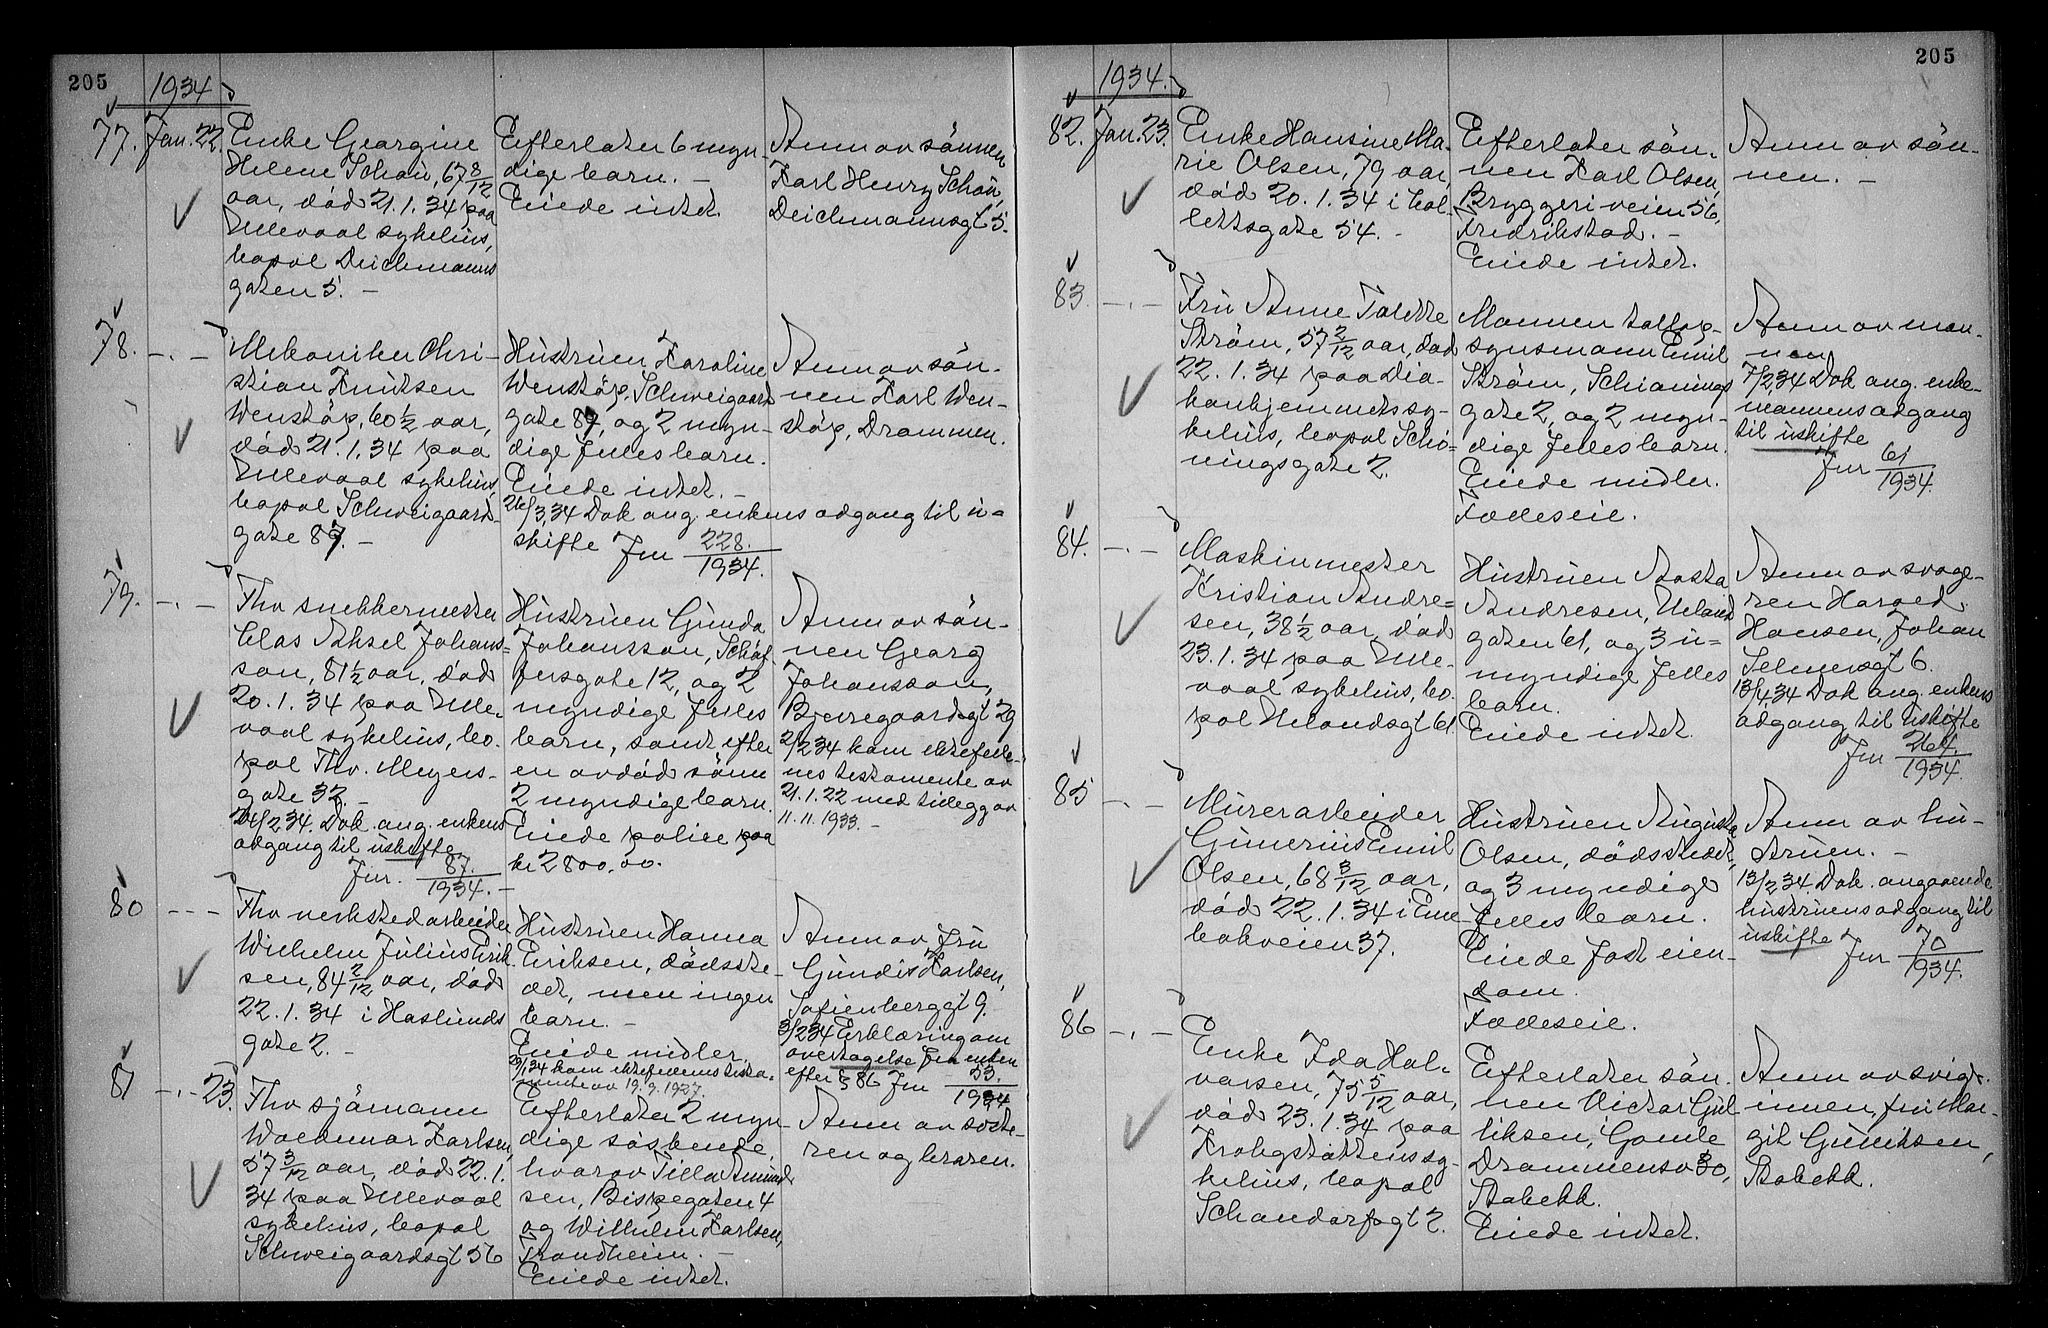 205
1934
77. Jan. 22.
Enke Georgine
Helene Schau, 67 8/12
aar, död 21.1.34 paa
Ullevaal sykehus,
bopæl Deichmanns
gaten 5. –
Efterlater 6 myn-
dige barn. –
Eiede intet.
Anm av sönnen
Karl Henry Schau,
Deichmannsgt 5.
78. – . –
Mekaniker Chri-
stian Knutsen
Wenstöp, 60 1/2 aar,
död 21.1.34 paa
Ullevaal sykehus,
bopæl Schweigaards-
gate 87. –
Hustruen Karoline
Wenstöp, Schweigaards
gate 87, og 2 myn-
dige felles barn.
Eiede intet. –
26/3,34 Dok ang. enkens adgang til u=
skifte Jnr 228./1934.
Anm av sön-
nen Karl Wen-
stöp, Drammen.
79. – . –
Fhv snekkermester
Clas Aksel Johans=
son, 81 1/2 aar, död
20.1.34 paa Ulle-
vaal sykehus, bo-
pæl Thv. Meyers-
gate 32. –
24/2 34. Dok. ang. enkens
adgang til uskifte
Jnr. 87./1934. –
Hustruen Gunda
Johansson, Schaf-
fersgate 12, og 2
myndige felles
barn, samt efter
en avdöd sönn
2 myndige barn.
Eiede police paa
kr 2800,00.
Anm av sön-
nen Georg
Johansson,
Bjerregaardsgt 29
2/2 34 kom ektefelle-
nes testamente av
21.1.22 med tillegg av
11.11.1933. –
80 – – –
Fhv verkstedarbeider
Wilhelm Julius Erik-
sen, 84 2/12 aar, död
22.1.34 i Haslunds
gate 2. –
Hustruen Hanna
Eriksen, dödsste-
det, men ingen
barn. –
Eiede midler.
29/1,34 kom ektefellenes testa-
mente av 19.9.1927.
Anm av fru
Gundis Karlsen,
Sofienberggt 9.
3/2 34 Erklæring om
overtagelse fra enken
efter § 86 Jnr 53./1934
81 – . – 23.
Fhv sjömann
Woldemar Karlsen,
57 3/12 aar, död 22.1.
34 paa Ullevaal
sykehus, bopæl
Schweigaardsgt 56
Efterlater 2 myn-
dige söskende,
hvorav Tilla Amund
sen, Bispegaten 4
og Wilhelm Karlsen,
Trondheim. –
Eiede intet.
Anm av söste-
ren og broren.
205
1934.
82. Jan. 23.
Enke Hansine Ma-
rie Olsen, 79 aar,
död 20.1.34 i Col-
lettsgate 54. –
Efterlater sön-
nen Karl Olsen,
Bryggeriveien 56,
Fredrikstad. –
Eiede intet.
Anm av sön-
nen. –
83. – . –
Fru Anne Talette
Ström, 57 2/12 aar, död
22.1.34 paa Dia-
konhjemmets sy-
kehus, bopæl Schö-
ningsgate 2.
Mannen tollop-
synsmann Emil
Ström, Schönings
gate 2, og 2 myn-
dige felles barn.
Eiede midler.
Fælleseie.
Anm av man-
nen
7/2 34 Dok ang. enke-
mannens adgang
til uskifte
Jnr 61/1934.
84. – . –
Maskinmester
Kristian Andre=
sen, 38 1/2 aar, död
23.1.34 paa Ulle-
vaal sykehus, bo-
pæl Uelandsgt 61
Hustruen Aasta
Andresen, Ueland
gaten 61, og 3 u=
myndige felles
barn.
Eiede intet.
Anm av svoge-
ren Harald
Hansen, Johan
Selmersgt 6.
13/4,34 Dok ang. enkens
adgang til uskifte
Jnr 264./1934.
85 – . –
Murerarbeider
Gunerius Emil
Olsen, 68 3/12 aar,
död 22.1.34 i Eve
bakveien 37.
Hustruen Auguste
Olsen, dödsstedet,
og 3 myndige
felles barn.
Eiede fast eien-
dom.
Fælleseie.
Anm av hu-
struen. –
13/2 34. Dok. angaaende
hustruens adgang til
uskifte Jnr 70/1934.
86 – . –
Enke Ida Hal-
vorsen, 75 5/12 aar,
död 23.1.34 paa
Krohgstöttens sy-
kehus, bopæl
Schandorfsgt 2.
Efterlater sön-
nen Victor Gul
liksen, Gamle
Drammensv 30,
Stabekk.
Eiede intet.
Anm av sviger-
innen, fru Mar-
git Gulliksen,
Stabekk.